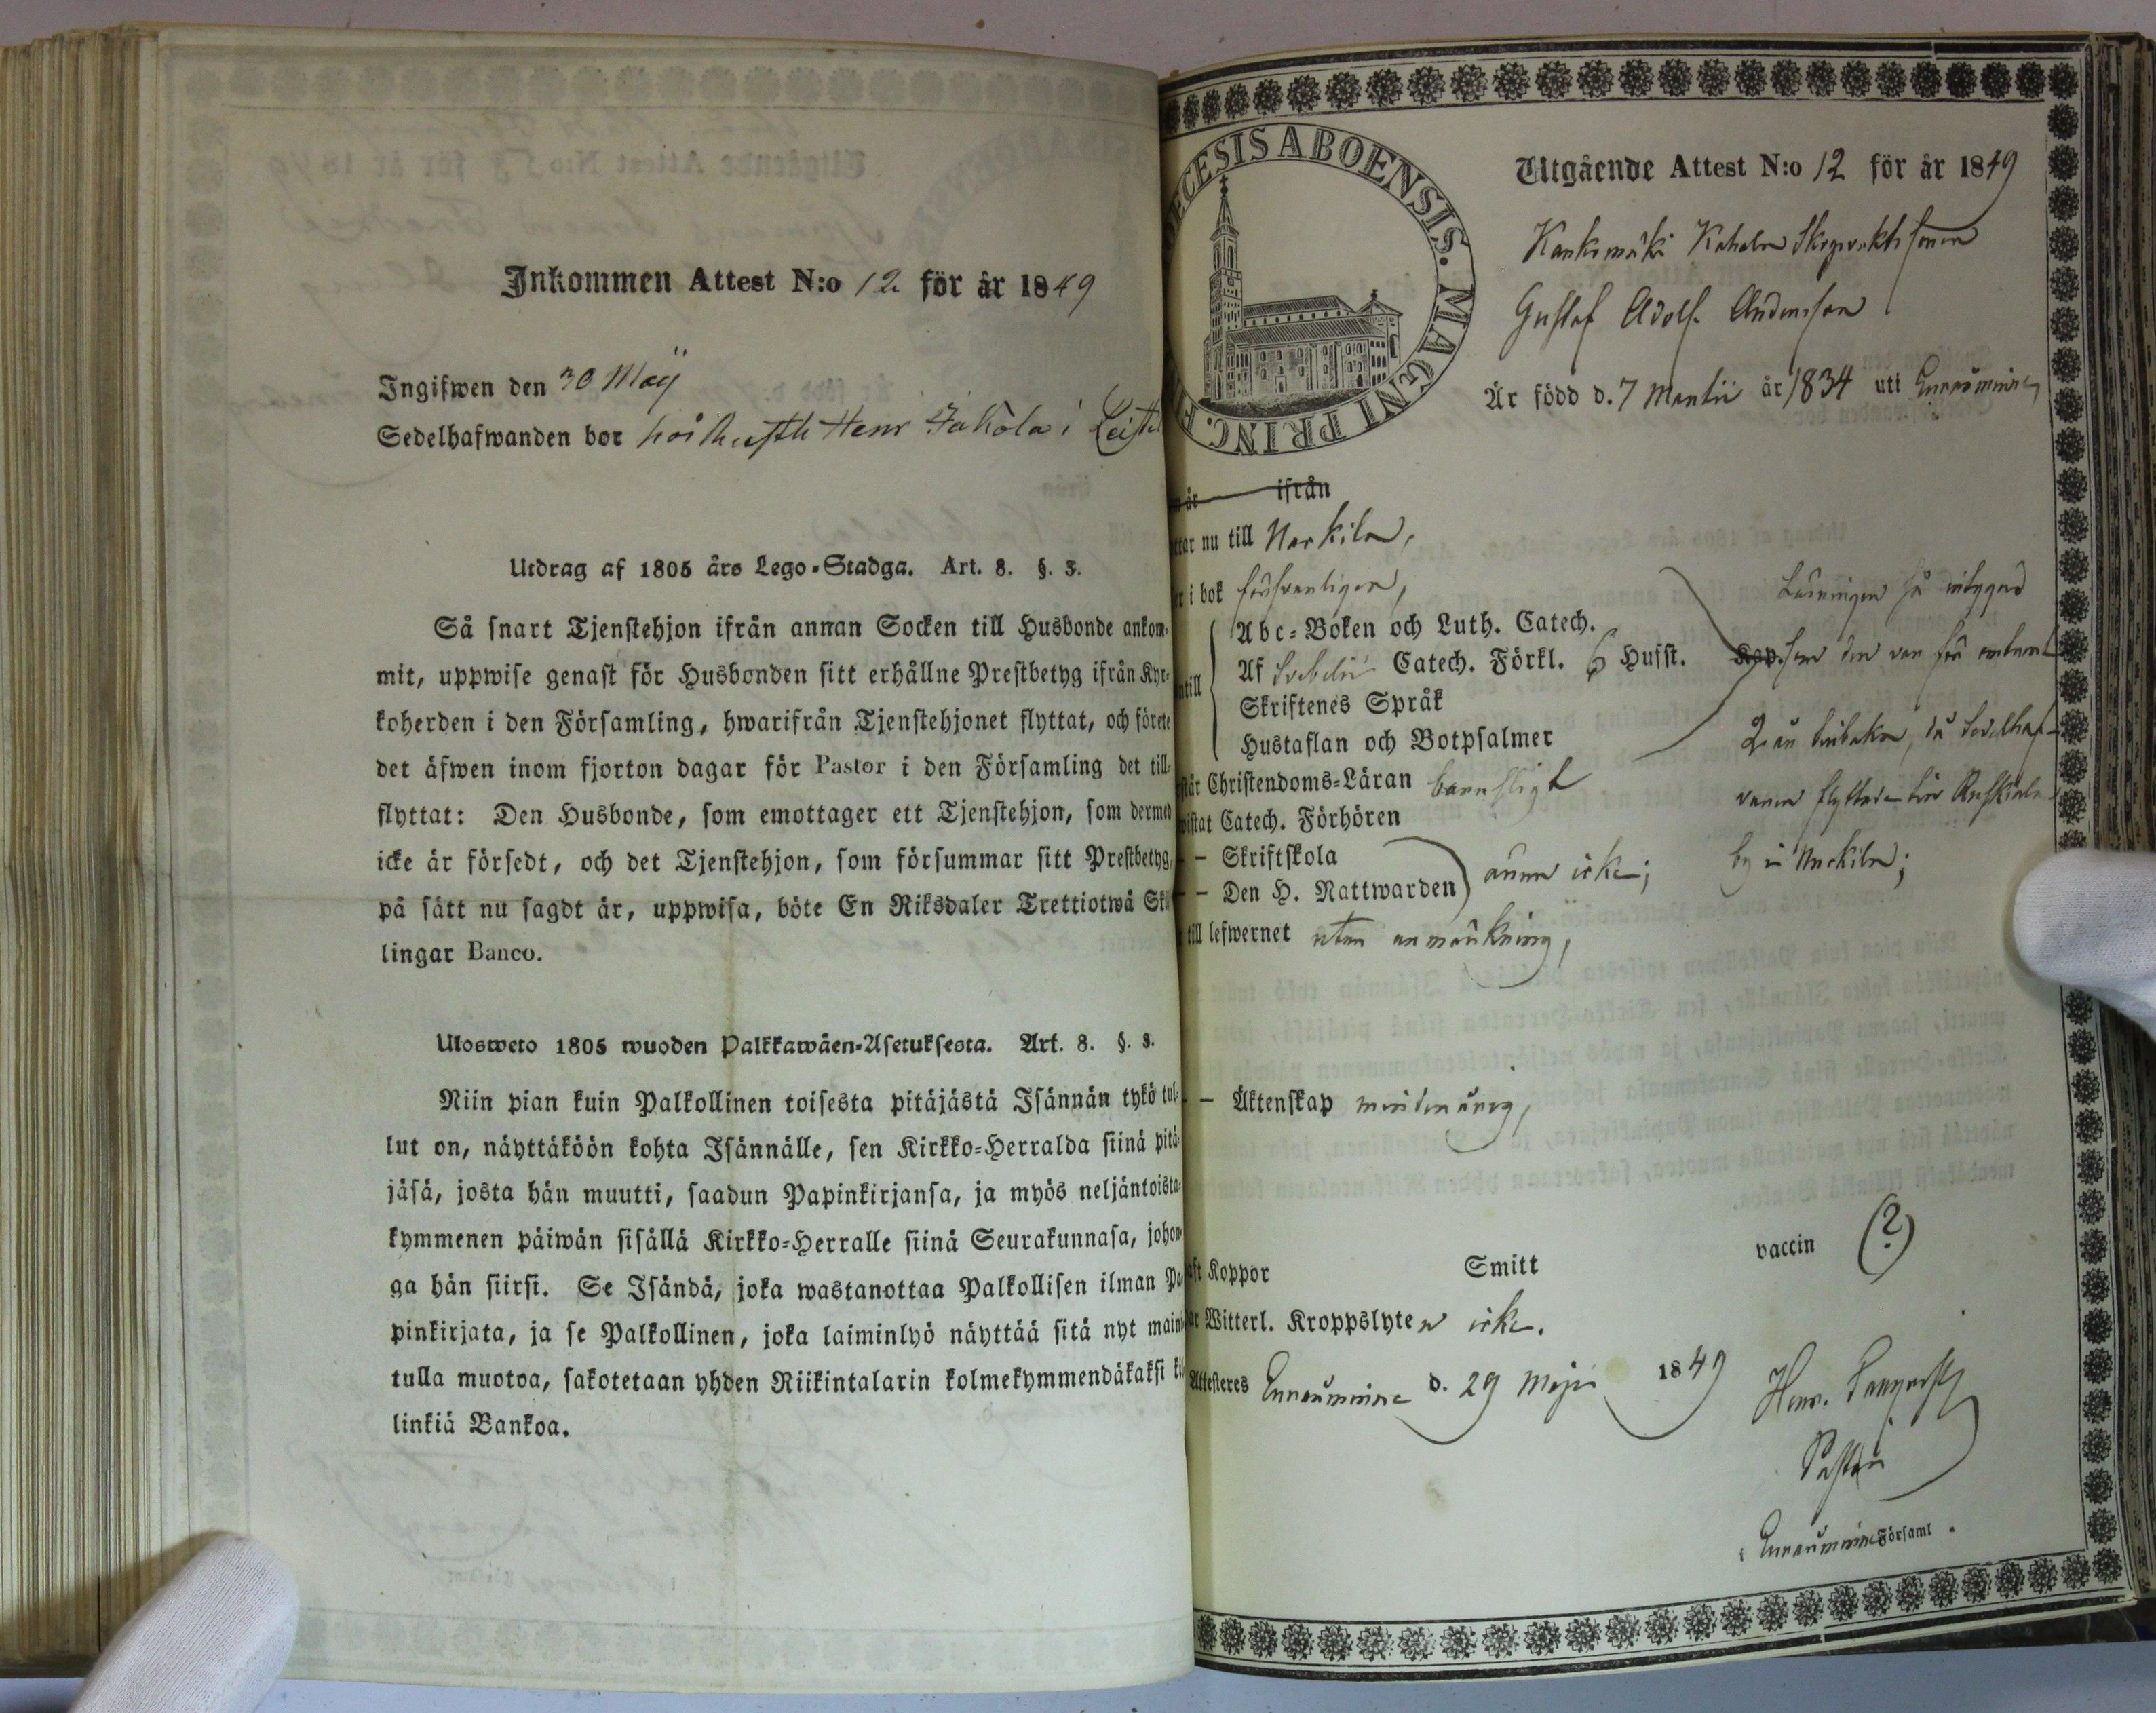 Inkommen Attest N:o 12 för år 1849
Ingifwen den 30 Maÿ
Sedelhafwanden bor hos Henr Jakola i
Utdrag af 1805 års Lego-Stadga. Art. 8. §. 3.
Så snart Tjenstehjon ifrån annan Socken till Husbonde ankom-
mit, uppwise genast för Husbonden sitt erhållne Prestbetyg ifrån Kyr-
koherden i den Församling, hwarifrån Tjenstehjonet flyttat, och förete
det äfwen inom fjorton dagar för Pastor i den Församling det till-
flyttat: Den Husbonde, som emottager ett Tjenstehjon, som dermed
icke är försedt, och det Tjenstehjon, som försummar sitt Prestbetyg,
på sätt nu sagdt är, uppwisa, böte En Riksdaler Trettiotwå Skil
lingar Banco.
Ulosweto 1805 wuoden Palkkawäen-Asetuksesta. Art. 8. §. 3.
Niin pian kuin Palkollinen toisesta pitäjästä Isännän tykö tul-
lut on, näyttäköön kohta Isännälle, sen Kirkko-Herralda siinä pitä-
jäsä, josta hän muutti, saadun Papinkirjansa, ja myös neljäntoista-
kymmenen päiwän sisällä Kirkko-Herralle siinä Seurakunnasa, johon-
ga hän siirsi. Se Isändä, joka wastanottaa Palkollisen ilman Pa-
pinkirjata, ja se Palkollinen, joka laiminlyö näyttää sitä nyt maini-
tulla muotoa, sakotetaan yhden Riikintalarin kolmekymmendäkaksi ki
linkiä Bankoa.
DIOECESIS ABOENSIS. MAGNI PRINC. F
Utgående Attest N:o 12 för år 1849
Kankimäki
Gustaf Adolf Andersson
Är född d. 7 Martii år 1834 uti Euraåminne
år ifrån
ttar nu till Nakkila,
i bok försvarligen,
Läsningen så
ntill
Abc-Boken och Luth. Catech.
Af Svebelii Catech. Förkl. 6 Husst. Kap. som den var för
Skriftenes Språk
2:ne år tillbaka, då Sedelhaf-
Hustaflan och Botpsalmer
står Christendoms-Läran barnsligt
vanen flyttade till Ruskiala
wistat Catech. Förhören
– – Skriftskola
by i Nakkila;
– – Den H. Nattwarden
ännu icke;
till lefwernet utan anmärkning,
– – Äktenskap minderårig,
Koppor Smitt vaccin (?)
Witterl. Kroppslyten icke.
Attesteres Euraåminne d. 29 Maji 1849 Henr.
Pastor
i Euraåminne Församl.